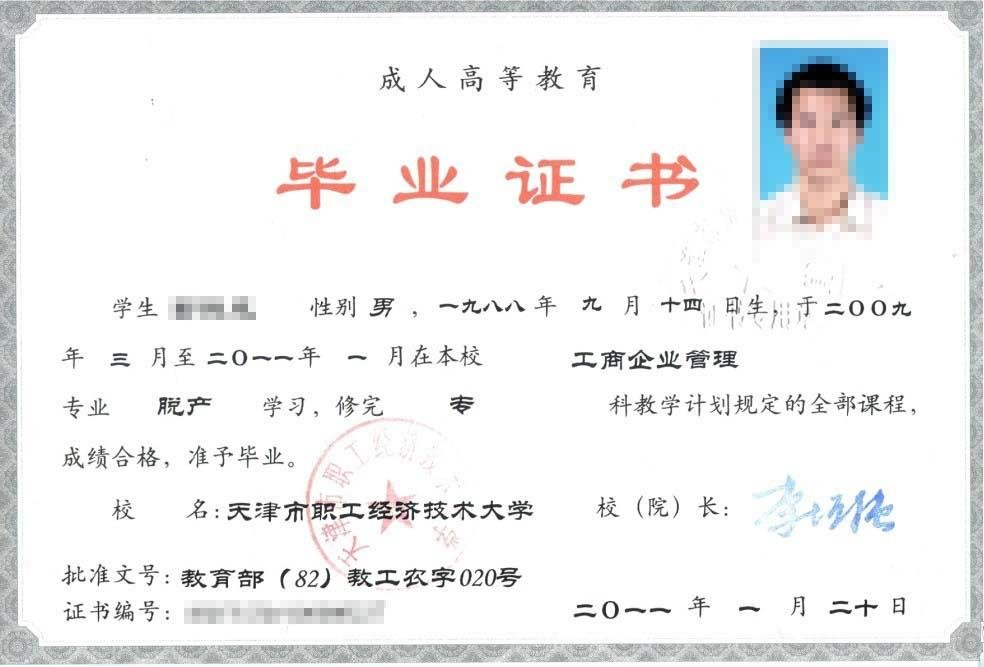 成人高等教育
毕业证书
学生 性别 男 ，一九八八年 九 月 十四 日生，于二〇〇九
年 三 月至二〇一一年 一 月在本校 工商企业管理
专业 脱产 学习，修完 专 科教学计划规定的全部课程，
成绩合格，准予毕业。
校 名：天津市职工经济技术大学 校（院）长：
批准文号：教育部（82）教工农字020号
证书编号：
二〇一一 年 一 月 二十 日
天津市职工经济技术大学